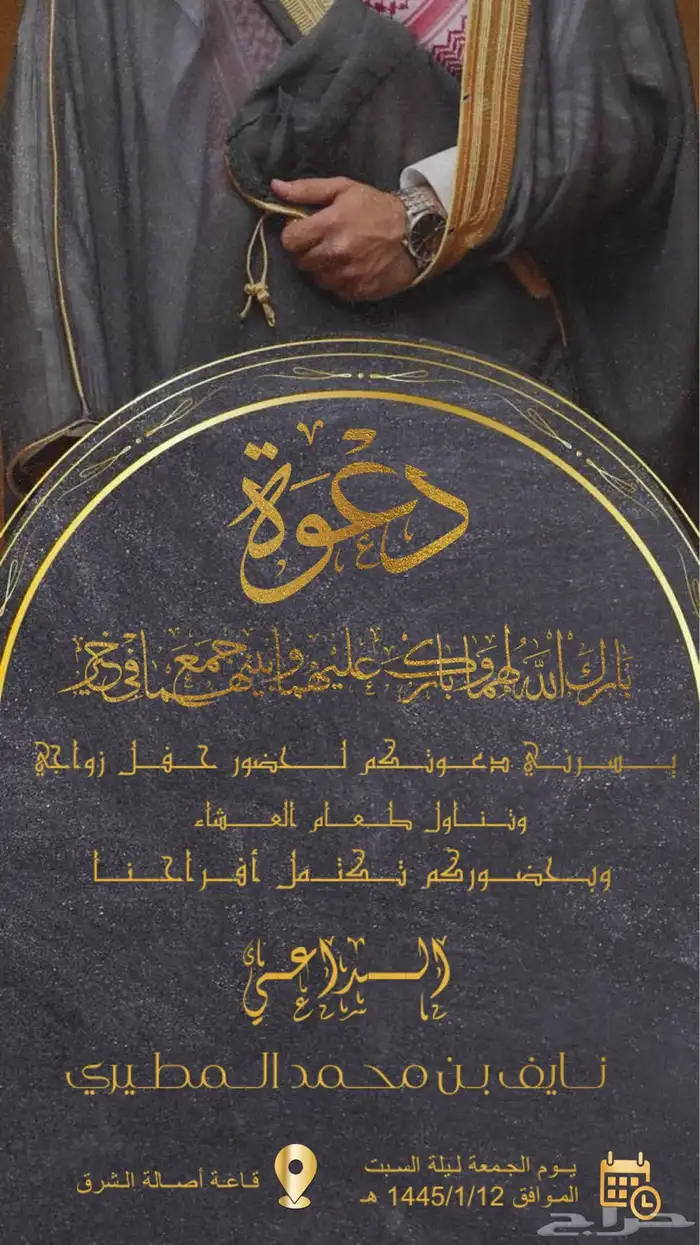 دعوة
بارك الله لهما وبارك عليهما وجمع بينهما في خير
يسرني دعوتكم لحضور حفل زواجي
وتناول طعام العشاء
وبحضوركم تكتمل أفراحنا
الداعي
نايف بن محمد المطيري
يوم الجمعة ليلة السبت
الموافق 1445/1/12 هـ
قاعة أصالة الشرق
حراج